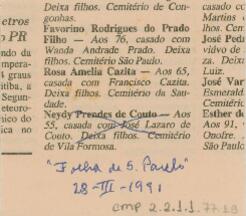 Deixa filhos. Cemitério de Con-
gonhas.
Favorino Rodrigues do Prado
Filho — Aos 76, casado com
Wanda Andrade Prado. Deixa
filhos. Cemitério São Paulo.
Rosa Amelia Cazita — Aos 65,
casada com Francisco Cazita.
Deixa filhos. Cemitério da Sau-
dade.
Neydy Prendes de Couto — Aos
55, casada com José Lazaro de
Couto. Deixa filhos. Cemitério
de Vila Formosa.
etros
o PR
ndo da
empera-
4 graus
itiba, a
Segun-
eteuroló-
nico do
ca no
José Ped
viúvo de
Deixa
Luiz.
José Var
Esmeralda
Cemitério
Esther de
Aos 91,
Onofre
São Paulo
"Folha de S. Paulo"
28-III-1991
cmp 2.2.1.1.77.19